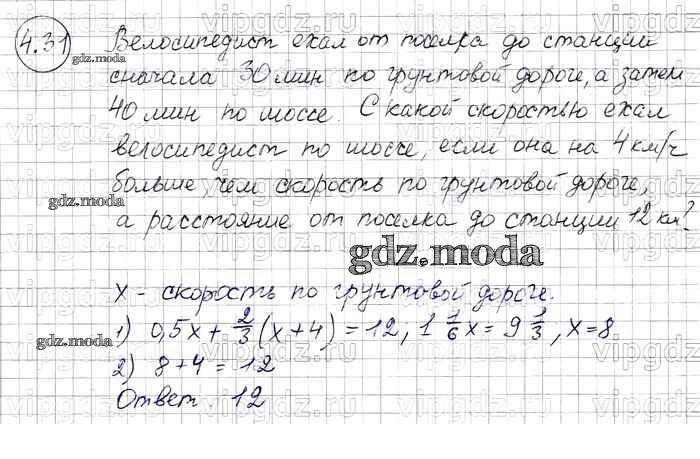 4.31
Велосипедист ехал от поселка до станции
сначала 30 мин по грунтовой дороге, а затем
40 мин по шоссе. С какой скоростью ехал
велосипедист по шоссе, если она на 4 км/ч
больше, чем скорость по грунтовой дороге,
а расстояние от поселка до станции 12 км?
gdz.moda
gdz.moda
gdz.moda
x - скорость по грунтовой дороге.
1) 0,5x + 2/3 (x + 4) = 12, 1 1/6 x = 9 1/3, x = 8
gdz.moda
2) 8 + 4 = 12
Ответ. 12
vipgdz.ru